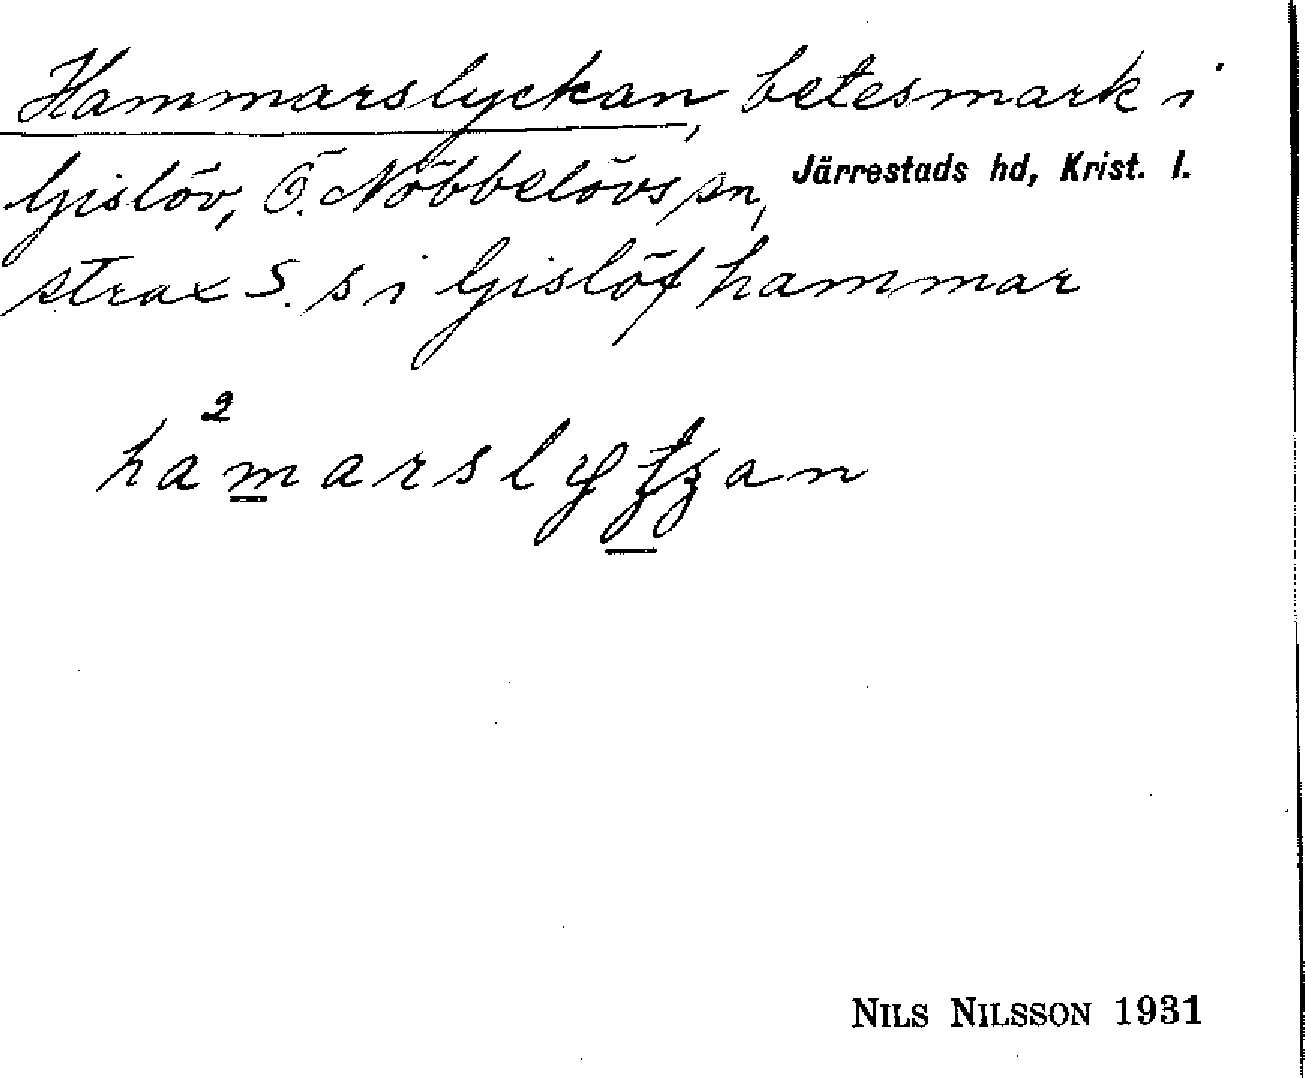 Hammarslyckan, betesmark i
Gislöv, Ö. Nöbbelövs sn, Järrestads hd, Krist. l.
strax S. s i Gislöf hammar
ha²marsly
NILS NILSSON 1931